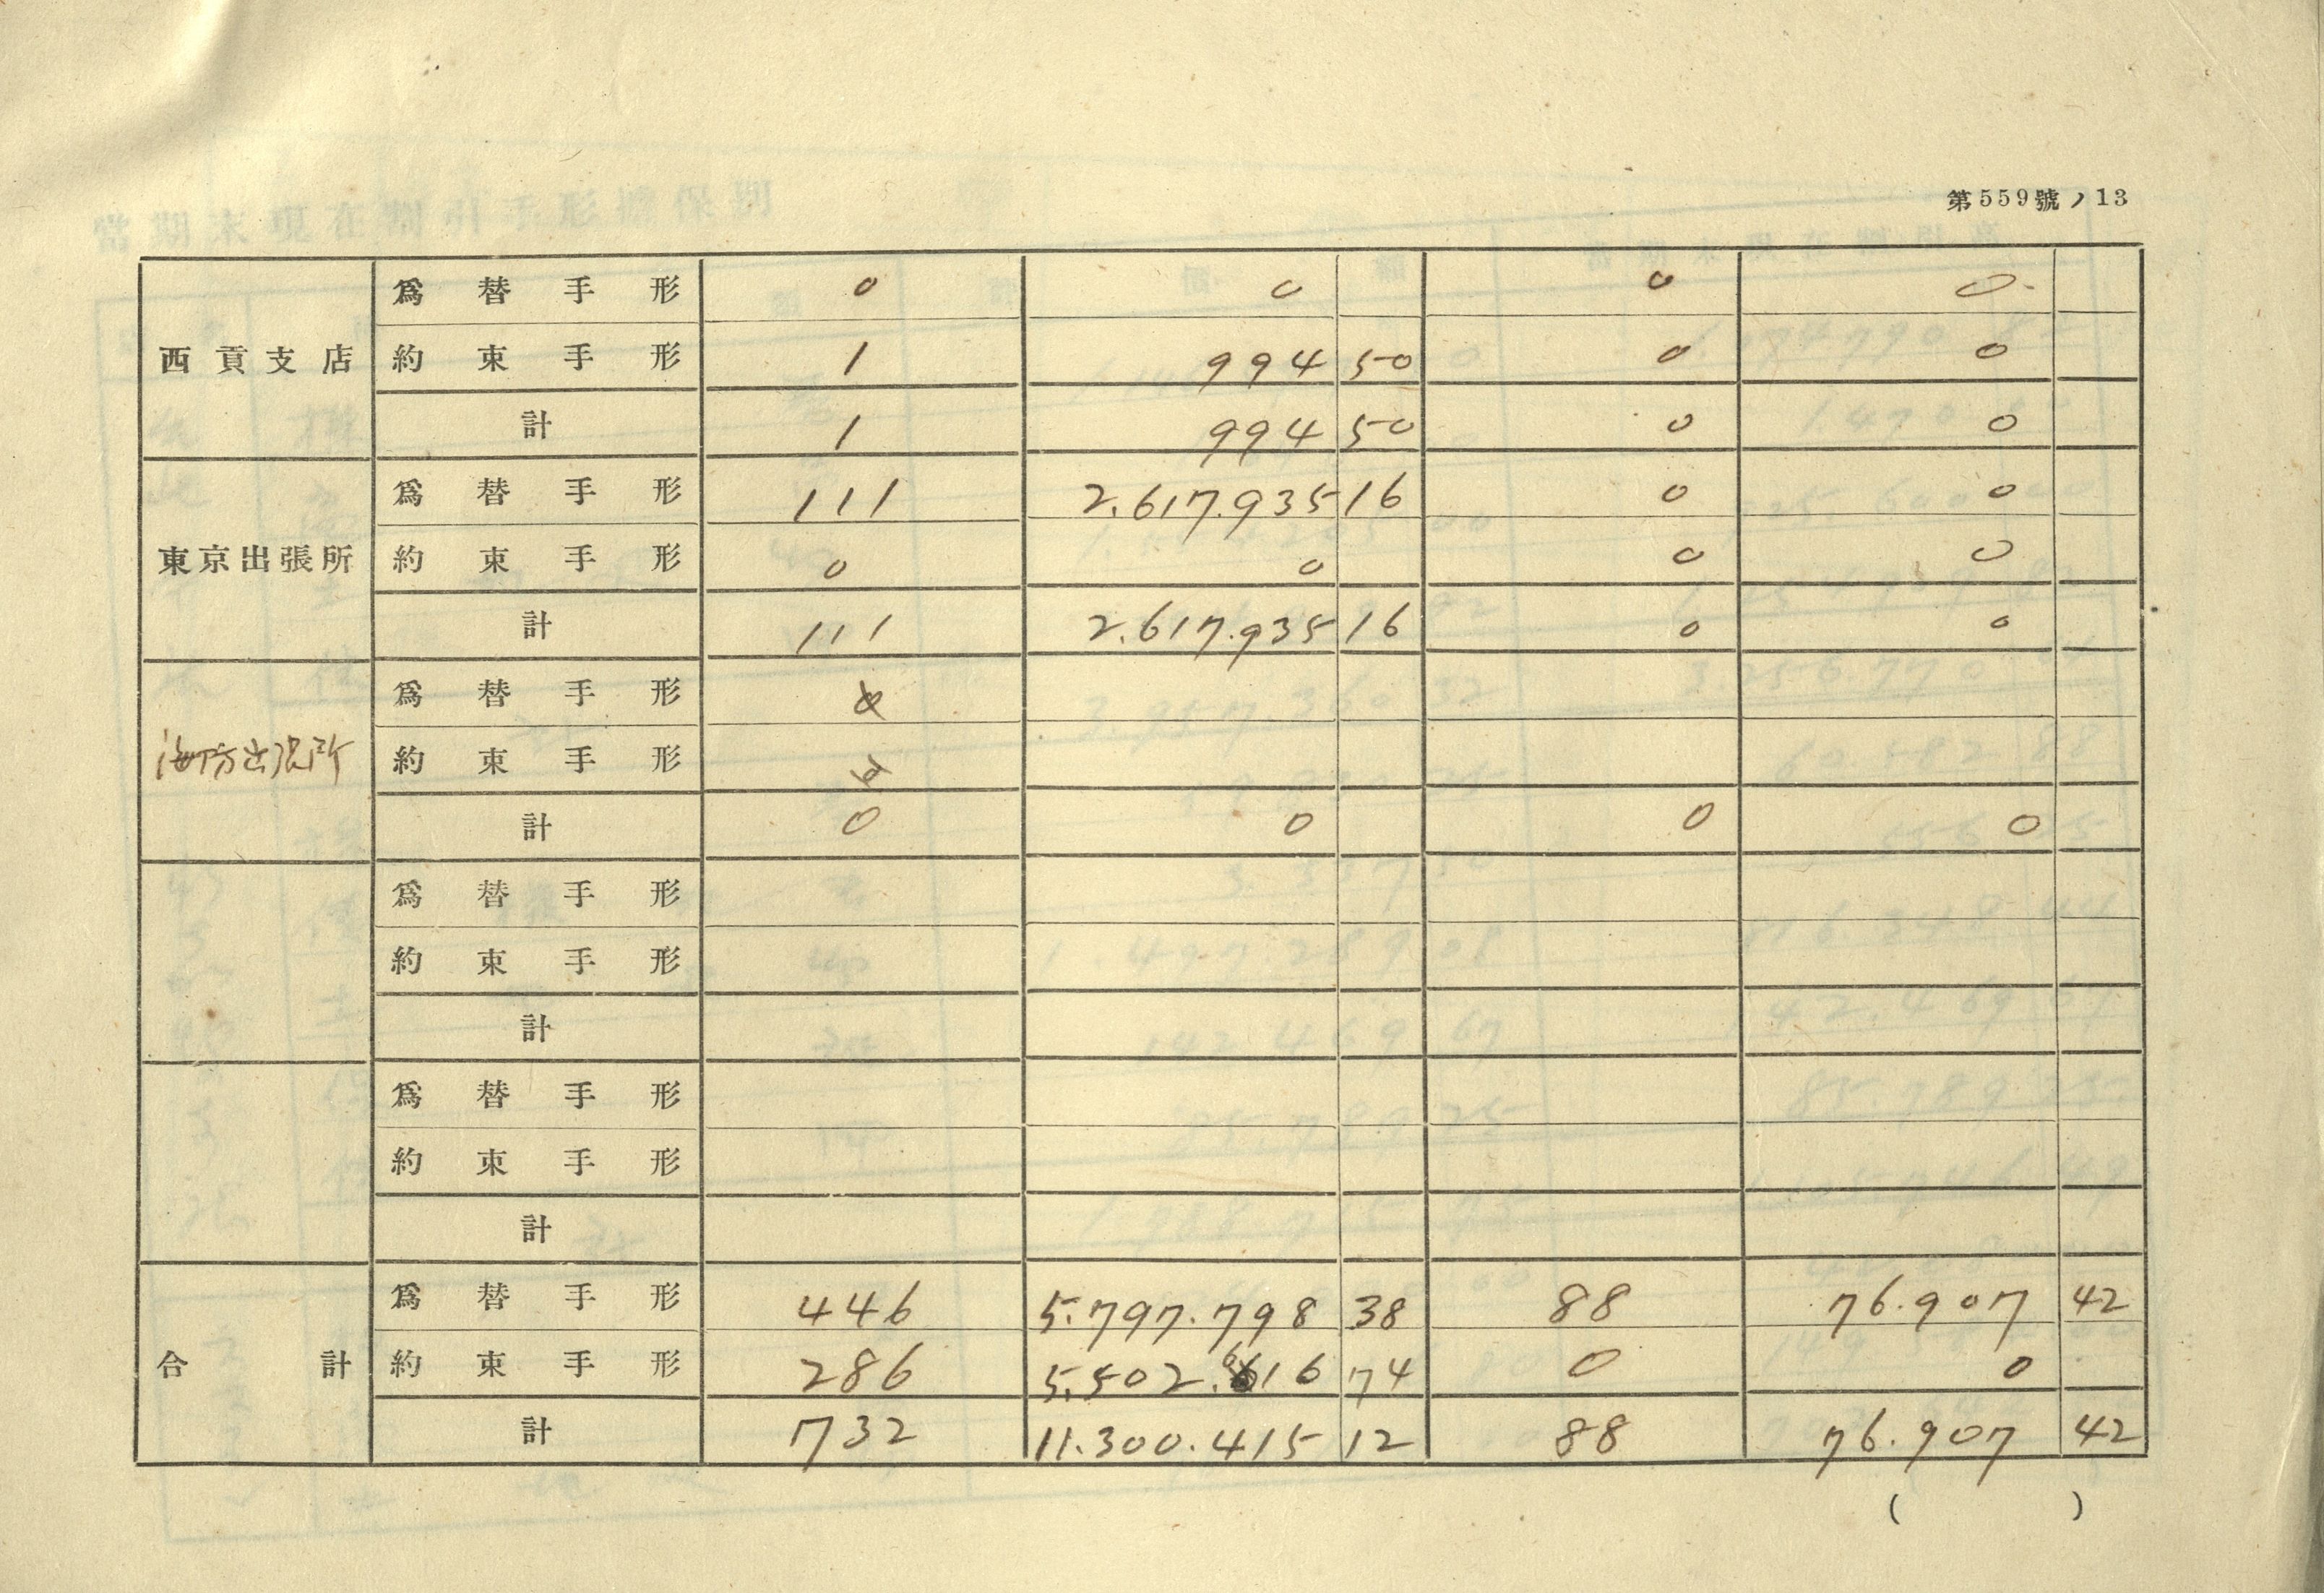 第559號ノ13
爲替手形 0 0 0 0
西貢支店 約束手形 1 994 50 0 0
計 1 994 50 0 0
爲替手形 111 2.617.935 16 0 0
東京出張所 約束手形 0 0 0 0
計 111 2.617.935 16 0 0
爲替手形
海防出張所 約束手形
計 0 0 0 0
爲替手形
約束手形
計
爲替手形
約束手形
計
爲替手形 446 5.797.798 38 88 76.907 42
合計 約束手形 286 5.502.616 74 0 0
計 732 11.300.415 12 88 76.907 42
( )